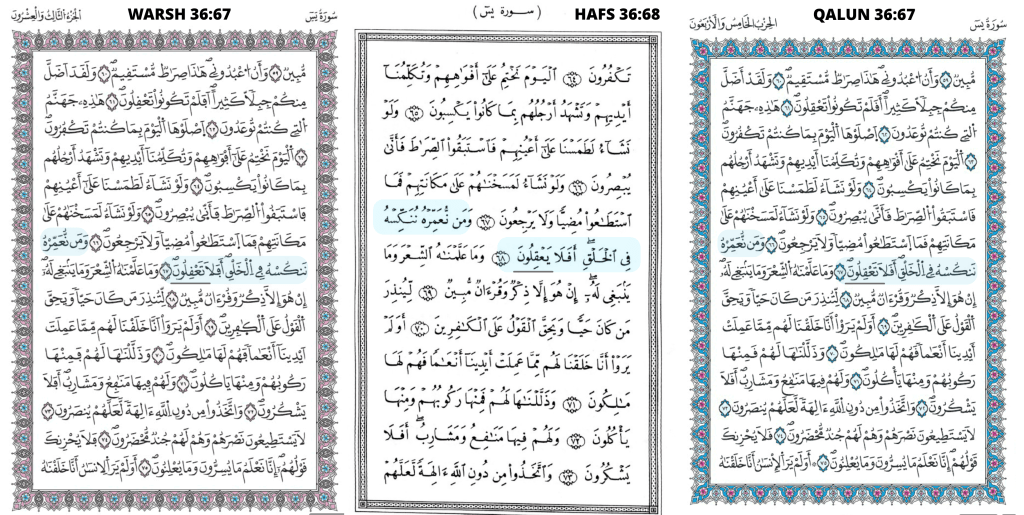 WARSH 36:67
الجزء الثالث والعشرون
سورة يس
مُّبِينٌ ٥٩ وَأَنُ اعْبُدُونِي هَٰذَا صِرَٰطٌ مُّسْتَقِيمٌ ٦٠ وَلَقَدْ أَضَلَّ
مِنكُمْ جِبِلّاً كَثِيراً أَفَلَمْ تَكُونُواْ تَعْقِلُونَ ٦١ هَٰذِهِۦ جَهَنَّمُ
التِي كُنتُمْ تُوعَدُونَ ٦٢ اَصْلَوْهَا اَلْيَوْمَ بِمَا كُنتُمْ تَكْفُرُونَ
٦٣ اَلْيَوْمَ نَخْتِمُ عَلَىٰ أَفْوَٰهِهِمْ وَتُكَلِّمُنَا أَيْدِيهِمْ وَتَشْهَدُ أَرْجُلُهُم
بِمَا كَانُواْ يَكْسِبُونَ ٦٤ وَلَوْ نَشَآءُ لَطَمَسْنَا عَلَىٰ أَعْيُنِهِمْ
فَاسْتَبَقُواْ الصِّرَٰطَ فَأَنَّىٰ يُبْصِرُونَ ٦٥ وَلَوْ نَشَآءُ لَمَسَخْنَٰهُمْ عَلَىٰ
مَكَانَتِهِمْ فَمَا اَسْتَطَٰعُواْ مُضِيّاً وَلَا يَرْجِعُونَ ٦٦ وَمَن نُّعَمِّرْهُ
نَنكُسْهُ فِي الْخَلْقِ أَفَلَا تَعْقِلُونَ ٦٧ وَمَا عَلَّمْنَٰهُ الشِّعْرَ وَمَا يَنۢبَغِي لَهُۥ
إِنْ هُوَ إِلَّا ذِكْرٌ وَقُرْءَانٌ مُّبِينٌ ٦٨ لِّتُنذِرَ مَن كَانَ حَيّاً وَيَحِقَّ
اَلْقَوْلُ عَلَى اَلْكَٰفِرِينَ ٦٩ أَوَلَمْ يَرَوَاْ اَنَّا خَلَقْنَا لَهُم مِّمَّا عَمِلَتْ
أَيْدِينَا أَنْعَٰماً فَهُمْ لَهَا مَٰلِكُونَ ٧٠ وَذَلَّلْنَٰهَا لَهُمْ فَمِنْهَا
رَكُوبُهُمْ وَمِنْهَا يَاكُلُونَ ٧١ وَلَهُمْ فِيهَا مَنَٰفِعُ وَمَشَارِبُ أَفَلَا
يَشْكُرُونَ ٧٢ وَاتَّخَذُواْ مِن دُونِ اللَّهِ ءَالِهَةً لَّعَلَّهُمْ يُنصَرُونَ ٧٣
لَا يَسْتَطِيعُونَ نَصْرَهُمْ وَهُمْ لَهُمْ جُندٌ مُّحْضَرُونَ ٧٤ فَلَا يُحْزِنكَ
قَوْلُهُمْ إِنَّا نَعْلَمُ مَا يُسِرُّونَ وَمَا يُعْلِنُونَ ٧٥ أَوَلَمْ يَرَ اَلْإِنسَٰنُ أَنَّا خَلَقْنَٰهُ
HAFS 36:68
(سورة يس)
تَكْفُرُونَ ٦٤ الْيَوْمَ نَخْتِمُ عَلَىٰٓ أَفْوَٰهِهِمْ وَتُكَلِّمُنَآ
أَيْدِيهِمْ وَتَشْهَدُ أَرْجُلُهُم بِمَا كَانُوا۟ يَكْسِبُونَ ٦٥ وَلَوْ
نَشَآءُ لَطَمَسْنَا عَلَىٰٓ أَعْيُنِهِمْ فَاسْتَبَقُوا۟ الصِّرَٰطَ فَأَنَّىٰ
يُبْصِرُونَ ٦٦ وَلَوْ نَشَآءُ لَمَسَخْنَٰهُمْ عَلَىٰ مَكَانَتِهِمْ فَمَا
اسْتَطَٰعُوا۟ مُضِيًّا وَلَا يَرْجِعُونَ ٦٧ وَمَن نُّعَمِّرْهُ نُنَكِّسْهُ
فِى الْخَلْقِ ۖ أَفَلَا يَعْقِلُونَ ٦٨ وَمَا عَلَّمْنَٰهُ الشِّعْرَ وَمَا
يَنۢبَغِى لَهُۥٓ ۚ إِنْ هُوَ إِلَّا ذِكْرٌ وَقُرْءَانٌ مُّبِينٌ ٦٩ لِّيُنذِرَ
مَن كَانَ حَيًّا وَيَحِقَّ الْقَوْلُ عَلَى الْكَٰفِرِينَ ٧٠ أَوَلَمْ
يَرَوْا۟ أَنَّا خَلَقْنَا لَهُم مِّمَّا عَمِلَتْ أَيْدِينَآ أَنْعَٰمًا فَهُمْ لَهَا
مَٰلِكُونَ ٧١ وَذَلَّلْنَٰهَا لَهُمْ فَمِنْهَا رَكُوبُهُمْ وَمِنْهَا
يَأْكُلُونَ ٧٢ وَلَهُمْ فِيهَا مَنَٰفِعُ وَمَشَارِبُ ۖ أَفَلَا
يَشْكُرُونَ ٧٣ وَاتَّخَذُوا۟ مِن دُونِ اللَّهِ ءَالِهَةً لَّعَلَّهُمْ
QALUN 36:67
الحزب الخامس والأربعون
سورة يس
مُّبِينٌ ٥٩ وَأَنُ اعْبُدُونِي هَٰذَا صِرَٰطٌ مُّسْتَقِيمٌ ٦٠ وَلَقَدْ أَضَلَّ
مِنكُمْ جِبِلّاً كَثِيراً أَفَلَمْ تَكُونُواْ تَعْقِلُونَ ٦١ هَٰذِهِۦ جَهَنَّمُ
اُلتِي كُنتُمْ تُوعَدُونَ ٦٢ اَصْلَوْهَا اَلْيَوْمَ بِمَا كُنتُمْ تَكْفُرُونَ
٦٣ اَلْيَوْمَ نَخْتِمُ عَلَىٰ أَفْوَٰهِهِمْ وَتُكَلِّمُنَا أَيْدِيهِمْ وَتَشْهَدُ أَرْجُلُهُم
بِمَا كَانُواْ يَكْسِبُونَ ٦٤ وَلَوْ نَشَآءُ لَطَمَسْنَا عَلَىٰ أَعْيُنِهِمْ
فَاسْتَبَقُواْ الصِّرَٰطَ فَأَنَّىٰ يُبْصِرُونَ ٦٥ وَلَوْ نَشَآءُ لَمَسَخْنَٰهُمْ عَلَىٰ
مَكَانَتِهِمْ فَمَا اَسْتَطَٰعُواْ مُضِيّاً وَلَا يَرْجِعُونَ ٦٦ وَمَن نُّعَمِّرْهُ
نَنكُسْهُ فِي الْخَلْقِ أَفَلَا تَعْقِلُونَ ٦٧ وَمَا عَلَّمْنَٰهُ الشِّعْرَ وَمَا يَنۢبَغِي لَهُۥ
إِنْ هُوَ إِلَّا ذِكْرٌ وَقُرْءَانٌ مُّبِينٌ ٦٨ لِّتُنذِرَ مَن كَانَ حَيّاً وَيَحِقَّ
اَلْقَوْلُ عَلَى اَلْكَٰفِرِينَ ٦٩ أَوَلَمْ يَرَوْاْ أَنَّا خَلَقْنَا لَهُم مِّمَّا عَمِلَتْ
أَيْدِينَا أَنْعَٰماً فَهُمْ لَهَا مَٰلِكُونَ ٧٠ وَذَلَّلْنَٰهَا لَهُمْ فَمِنْهَا
رَكُوبُهُمْ وَمِنْهَا يَأْكُلُونَ ٧١ وَلَهُمْ فِيهَا مَنَٰفِعُ وَمَشَارِبُ أَفَلَا
يَشْكُرُونَ ٧٢ وَاتَّخَذُواْ مِن دُونِ اللَّهِ ءَالِهَةً لَّعَلَّهُمْ يُنصَرُونَ ٧٣
لَا يَسْتَطِيعُونَ نَصْرَهُمْ وَهُمْ لَهُمْ جُندٌ مُّحْضَرُونَ ٧٤ فَلَا يُحْزِنكَ
قَوْلُهُمْ إِنَّا نَعْلَمُ مَا يُسِرُّونَ وَمَا يُعْلِنُونَ ٧٥ أَوَلَمْ يَرَ اَلْإِنسَٰنُ أَنَّا خَلَقْنَٰهُ